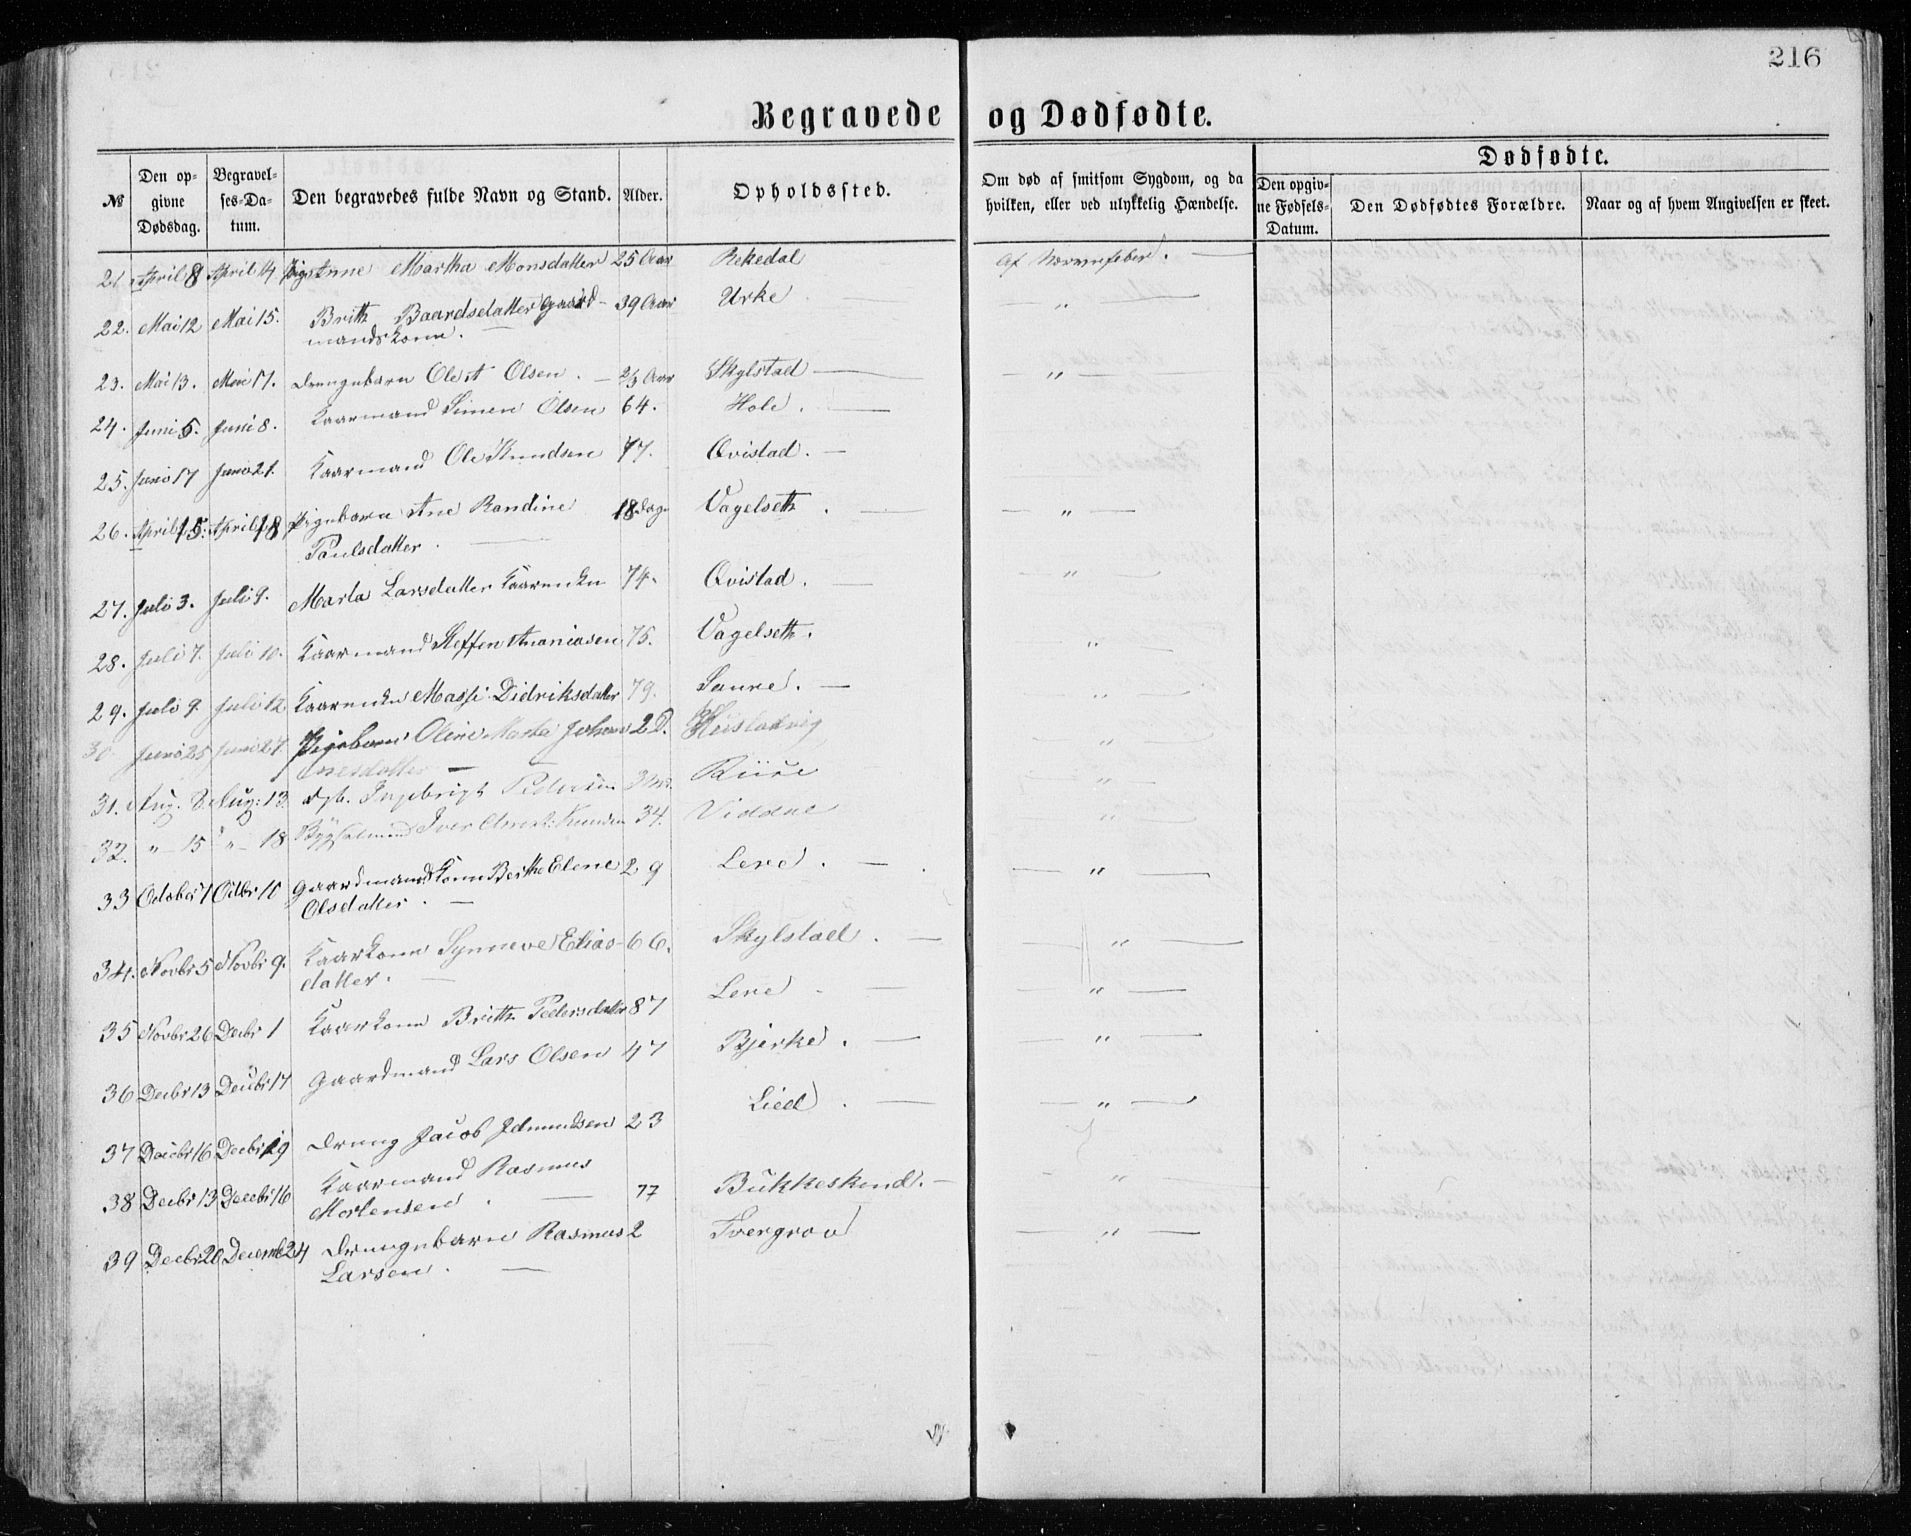 216
Begravede og Dødfødte.
№
Den opgivne Dødsdag.
Begravelses-Datum.
Den begravedes fulde Navn og Stand.
Alder.
Opholdssted.
Om død af smitsom Sygdom, og da hvilken, eller ved ulykkelig Hændelse.
Dødfødte.
Den opgivne Fødsels-Datum.
Den Dødfødtes Forældre.
Naar og af hvem Angivelsen er skeet.
21. April 8 April 14 Anne Martha Monsdatter 25 Aar Rekedal Af
22. Mai 12 Mai 15. Britth Baardsdatter Gaard- 39 Aar Urke "
mandskone.
23. Mai 13. Mai 17. Drengebarn Ole Olsen. 2/3 Aar Skylstad "
24. Juni 5. Juni 8. Kaarmand Simen Olsen 64. Hole.
25. Juni 17 Juni 21. Kaarmand Ole Knudsen 77. Qvistad.
26. April 15. April 18 Pigebarn Ane Randine 18 Dage Vagelseth "
Paulsdatter.
27. Juli 3. Juli 9. Marta Larsdatter Kaarenke 74. Qvistad. "
28. Juli 7. Juli 10. Kaarmand Steffen Ananiasen 75. Vagelseth. "
29. Juli 9. Juli 12 Kaarenke Massi Didriksdatter 79. Saure. "
30. Juni 25 Juni 27. Pigebarn Oline Marta Johan- 2 D. "
nesdatter
31. Aug. 8 Aug: 13. Ingebrigt Pedersen Riise "
32. " 15 " 18 Iver Knudsen 34. Viddal "
33 October 7 Octbr 10 Gaardmands Kone Berthe Elene 29 Lere. "
Olsdatter.
34. Novbr 5 Novbr 9. Kaarkone Synneve Elias- 66. Skylstad. "
datter.
35 Novbr 26 Decbr 1 Kaarkone Britth Pedersdatter 87 Lere "
36 Decbr 13 Decbr 17 Gaardmand Lars Olsen 47 Bjerke. "
37 Decbr 16 Decbr 19 Dreng Jacob Edmundsen 23 Lied. "
38 Decbr 13 Decebr 16 Kaarmand Rasmus
Mortensen. 77 Bukkeskind. "
39 Decbr 20 Decemb 24 Drengebarn Rasmus 2 Tvergrov "
Larsen.